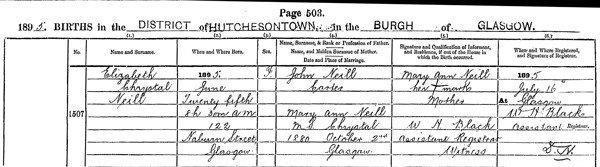 Page 503.
1895. BIRTHS in the DISTRICT of HUTCHESONTOWN, in the BURGH of GLASGOW.
(1.) (2.) (3.) (4.) (5.) (6.)
No. Name and Surname. When and Where Born. Sex. Name, Surname, & Rank or Profession of Father. Name, and Maiden Surname of Mother. Date and Place of Marriage. Signature and Qualification of Informant, and Residence, if out of the House in which the Birth occurred. When and Where Registered, and Signature of Registrar.
1507
Elizabeth
Chrystal
Neill
1895.
June
Twenty fifth
8h 30m A M
122
Naburn Street
Glasgow
F
John Neill
Carter
Mary Ann Neill
M.S. Chrystal
1880 October 2nd
Glasgow
Mary Ann Neill
her + mark
Mother
W H Black
Assistant Registrar
Witness
1895
July 16th
At Glasgow
W H Black
Assistant Registrar.